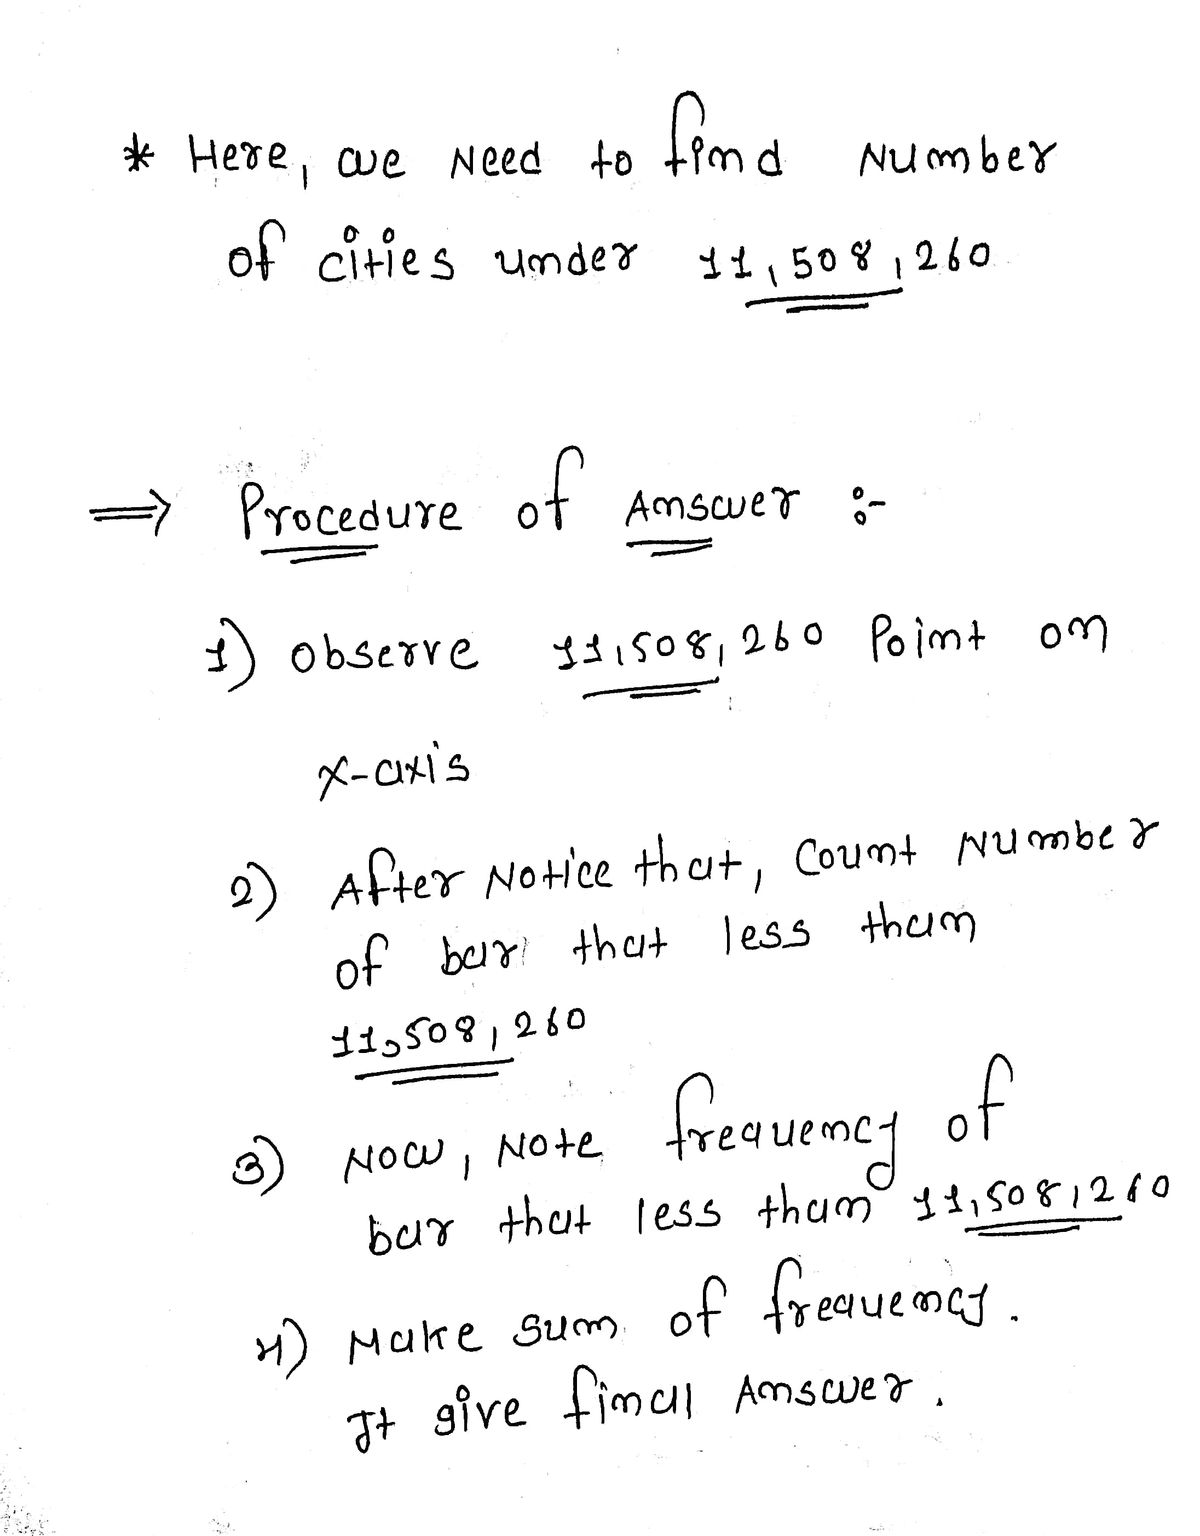 * Here, we Need to find Number
of cities under 11,508,260
⇒ Procedure of Answer :-
1) Observe 11,508,260 Point on
X-axis
2) After Notice that, Count Number
of bar that less than
11,508,260
3) Now, Note frequency of
bar that less than 11,508,260
4) Make sum of frequency.
It give final Answer.